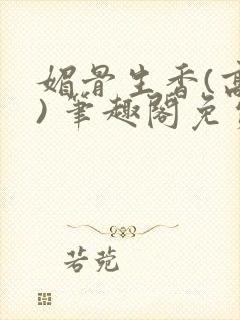 媚骨生香(高
)笔趣阁免
若菀